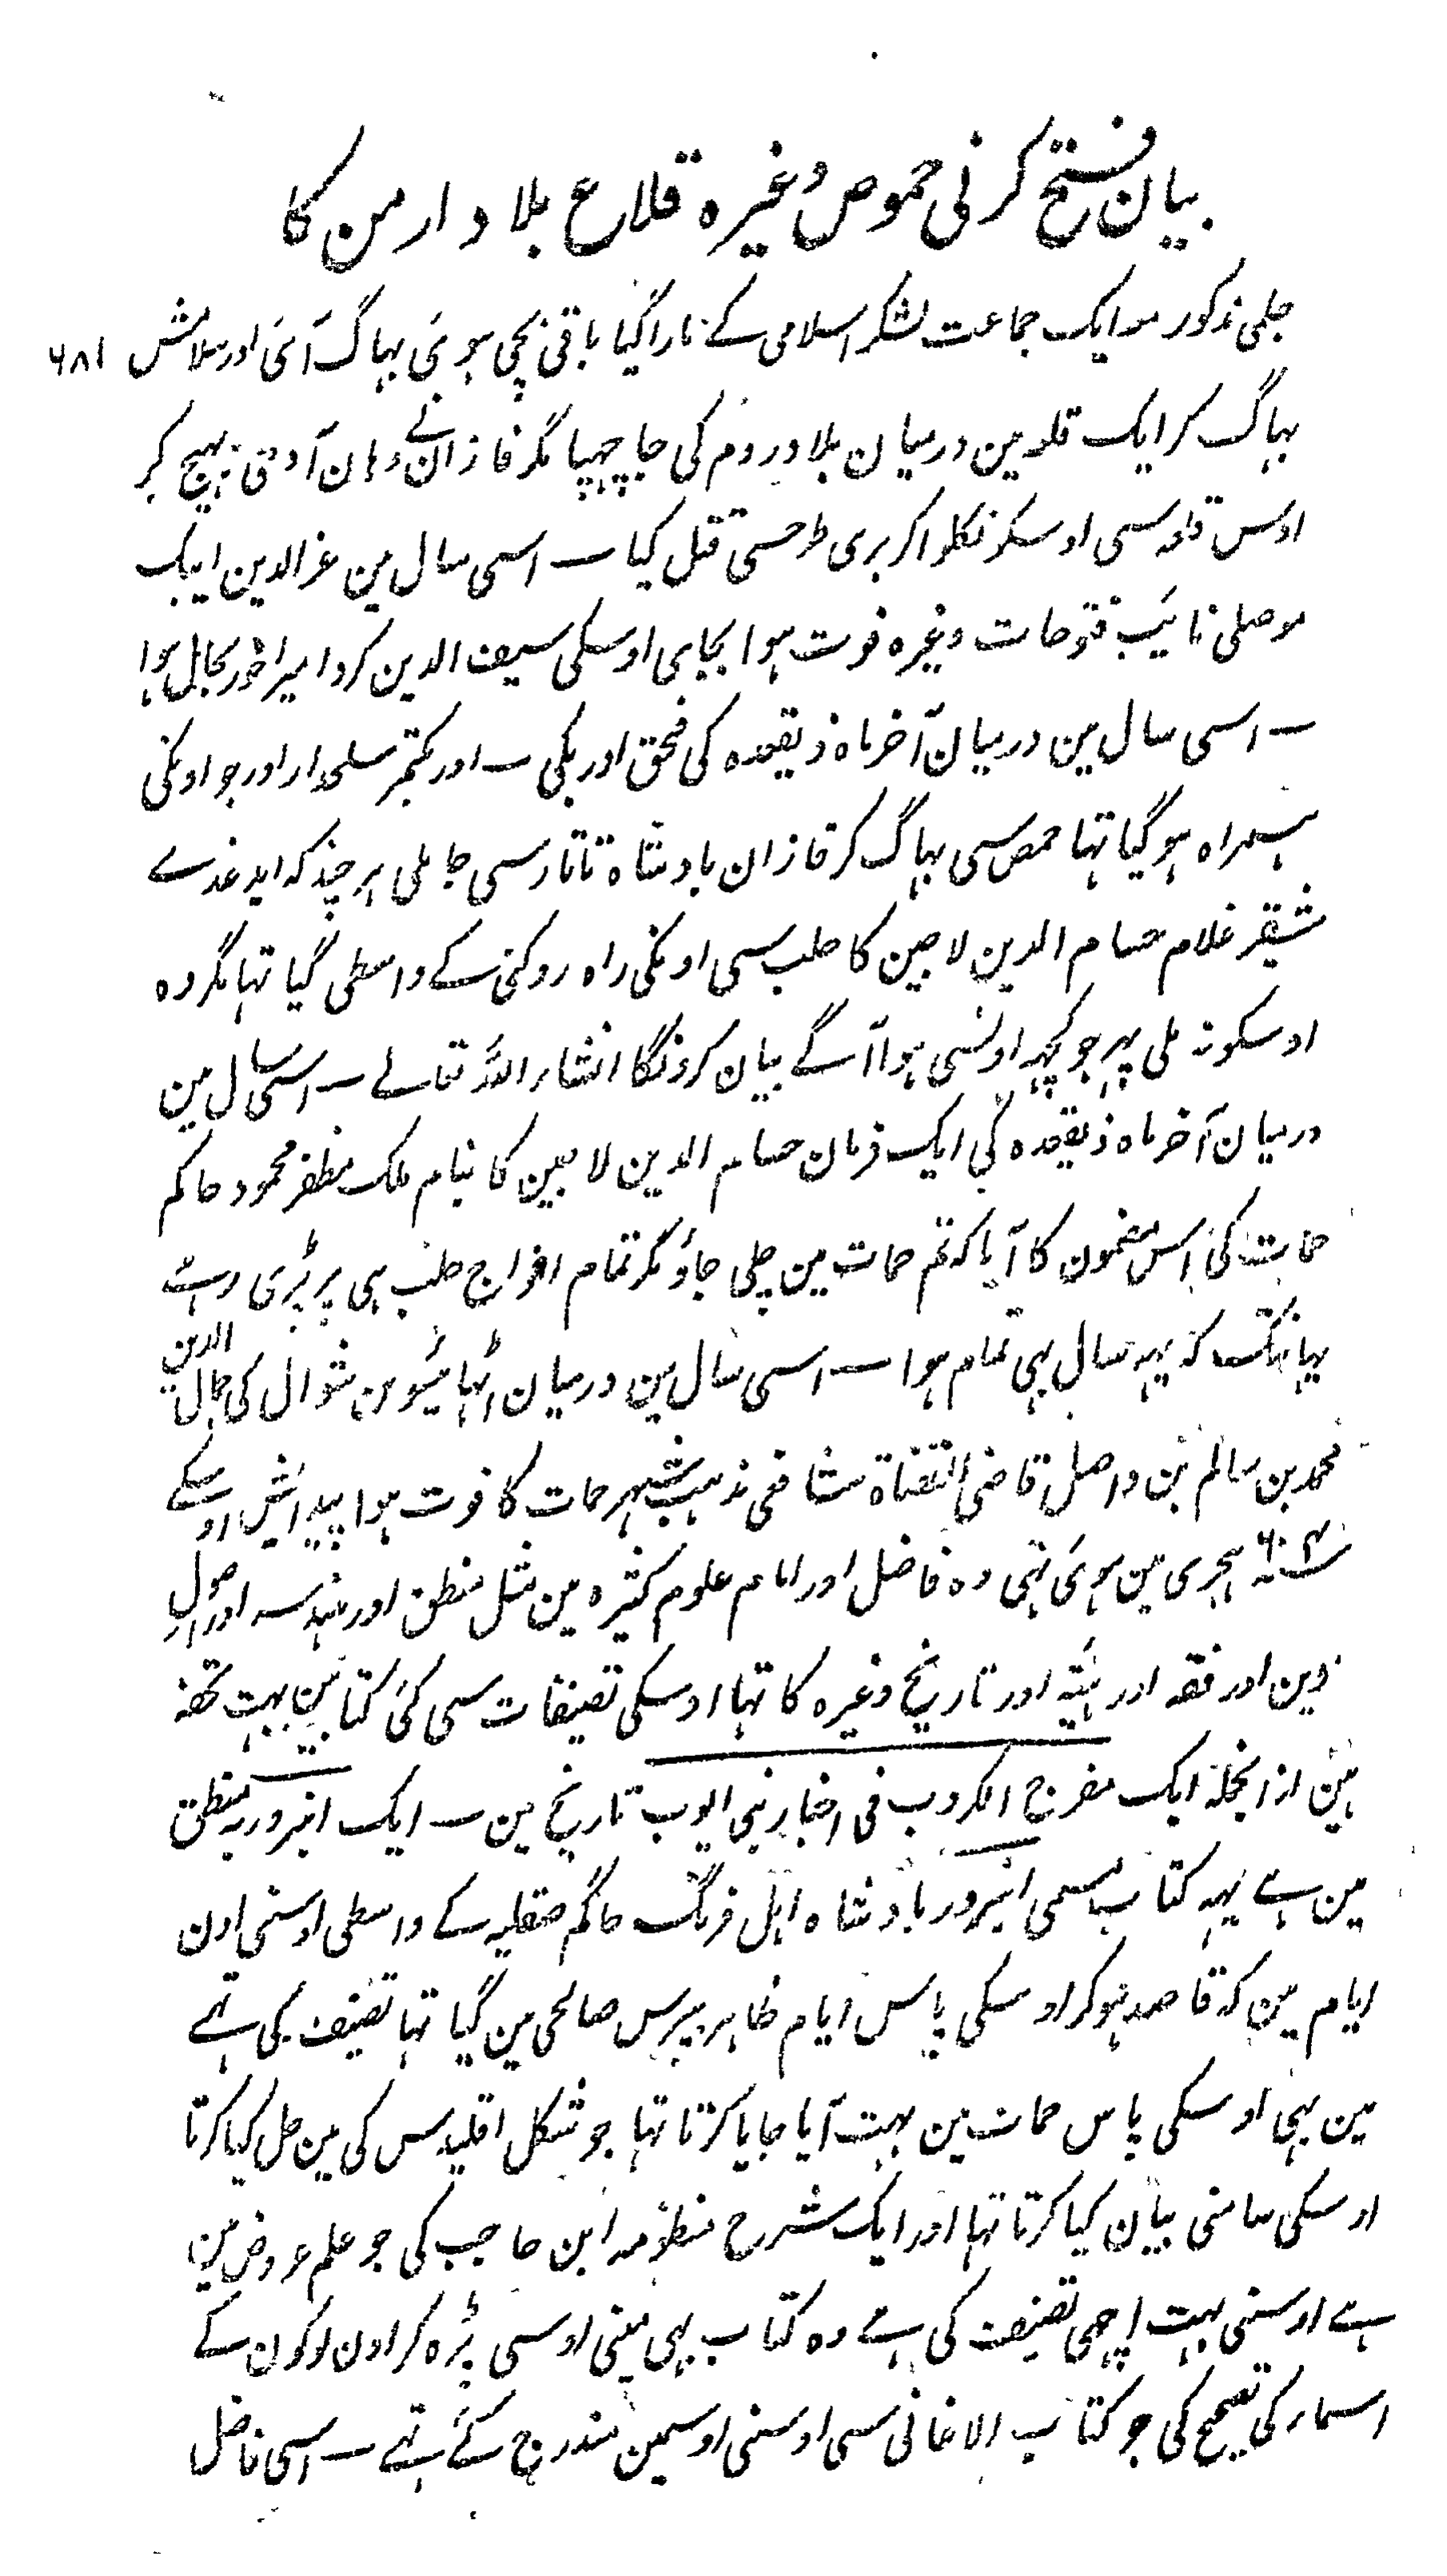 بیان فتح کرنی حموص وغیرہ قلاع بلاد ارمن کا
جلی مذکور مہ ایک جماعت لشکر اسلامی کے مارا گیا باقی بچی ہوئی بہاگ آئی اور سلامش ۶۸۱
بہاگ کر ایک قلعہ مین درمیان بلاد روم کی جا چہپا مگر قازان نے وہان آدمی بہیج کر
اوس قلعہ سی اوسکو نکلوا کر بری طرحسی قتل کیا ــ اسی سال مین عزالدین ایبک
موصلی نائیب فتوحات وغیرہ فوت ہوا بجای اوسکی سیف الدین کرد امیراخور بحال ہوا
ــ اسی سال مین درمیان آخر ماہ ذیقعدہ کی قبحق اور بکی ــ اور بکتمر سلحدار اور جو اونکی
ہمراہ ہو گیا تہا حمص سی بہاگ کر قازان بادشاہ تاتار سی جا ملی ہر چند کہ ایدغدے
شقیر غلام حسام الدین لاجین کا حلب سی اونکی راہ روکنی کے واسطی گیا تہا مگر وہ
اوسکو نہ ملی پہر جو کچہہ اونسی ہوا آگے بیان کرونگا انشاء اللہ تعالے ــ اسی سال مین
درمیان آخر ماہ ذیقعدہ کی ایک فرمان حسام الدین لاجین کا بنام ملک مظفر محمود حاکم
حمات کی اس مضمون کا آیا کہ تم حمات مین چلی جاؤ مگر تمام افواج حلب ہی پر پڑی رہے
یہانتک کہ یہہ سال بہی تمام ہوا ــ اسی سال مین درمیان اٹہائیسوین شوال کی جمال الدین
محمد بن سالم بن واصل قاضی القضاۃ شافعی مذہب شہر حمات کا فوت ہوا پیدائش اوسکے
سنہ ۶۰۴ ہجری مین ہوئی تہی وہ فاضل اور امام علوم کثیرہ مین مثل منطق اور ہندسہ اور اصولِ
دین اور فقہ اور ہیئہ اور تاریخ وغیرہ کا تہا اوسکی تصنیفات سی کئی کتابین بہت تحفہ
ہین از انجملہ ایک مفرج الکروب فی اخبار بنی ایوب تاریخ مین ــ ایک انبروریہ منطق
مین ہے یہہ کتاب مسمی انبرور بادشاہ اہل فرنگ حاکم صقلیہ کے واسطی اوسنی اون
ایام مین کہ قاصد ہو کر اوسکی پاس ایام ظاہر بیبرس صالحی مین گیا تہا تصنیف کی ہے
مین بہی اوسکی پاس حمات مین بہت آیا جایا کرتا تہا جو شکل اقلیدس کی مین حل کیا کرتا
اوسکی سامنی بیان کیا کرتا تہا اور ایک شرح منظومہ ابن حاجب کی جو علم عروض مین
ہے اوسنی بہت اچہی تصنیف کی ہے وہ کتاب بہی مینی اوسی پڑہ کر اون لوگون کے
اسماء کی تصحیح کی جو کتاب الاغانی سی اوسنی اوسمین مندرج کئے تہے ــ اسی فاضل